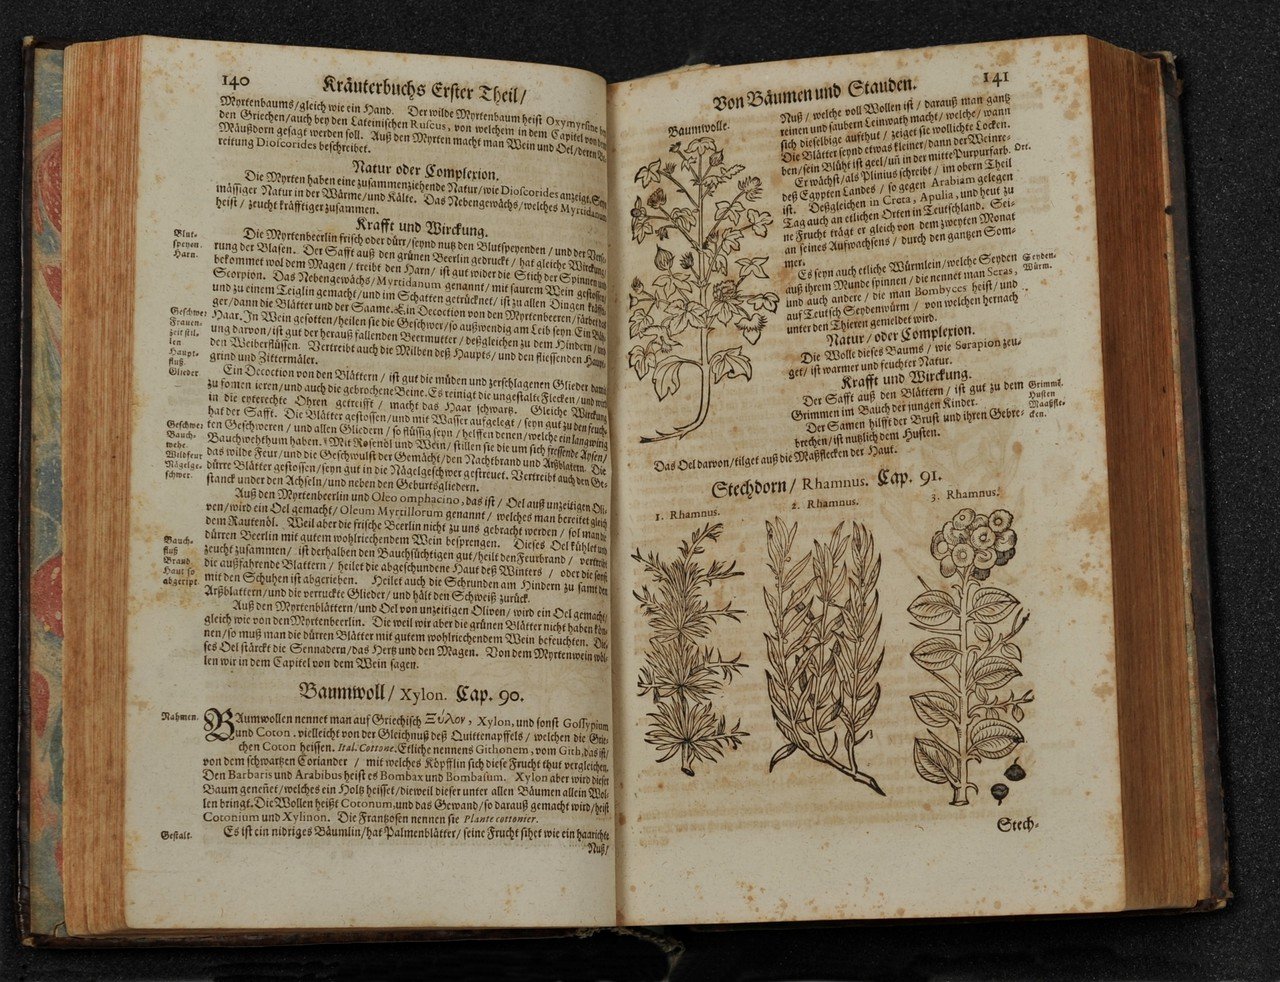 140
Kräuterbuchs Erster Theil/
Myrtenbaums/gleich wie ein Hand. Der wilde Myrtenbaum heist Oxymyrsine
den Griechen/auch bey den Lateinischen Ruscus, von welchem in dem Capitel von
Mäußdorn gesagt werden soll. Auß den Myrten macht man Wein und Oel/deren
reitung Dioscorides beschreibet.
Natur oder Complexion.
Die Myrten haben eine zusammenziehende Natur/wie Dioscorides anzeigt.
mässiger Natur in der Wärme/und Kälte. Das Nebengewächs/welches Myrtidanum
heist/zeucht kräfftiger zusammen.
Krafft und Wirckung.
Blut-
speyen.
Harn.
Die Myrtenbeerlin frisch oder dürr/seynd nutz den Blutspeyenden/und der
rung der Blasen. Der Safft auß den grünen Beerlin gedruckt/hat gleiche Wirckung/
bekommet wol dem Magen/treibt den Harn/ist gut wider die Stich der Spinnen und
Scorpion. Das Nebengewächs/Myrtidanum genannt/mit saurem Wein gestossen/
und zu einem Teiglin gemacht/und im Schatten getrücknet/ist zu allen Dingen
ger/dann die Blätter und der Saame. Ein Decoction von den Myrtenbeeren/färbet
Geschwe:
Frauen-
zeit stil-
len
Haupt-
fluß
Glieder
Haar. In Wein gesotten/heilen sie die Geschwer/so außwendig am Leib seyn
ung darvon/ist gut der herauß fallenden Beermutter/deßgleichen zu dem Hindern/und
den Weiberflüssen. Vertreibt auch die Milben deß Haupts/und den fliessenden
grind und Zittermäler.
Ein Decoction von den Blättern/ist gut die müden und zerschlagenen Glieder damit
zu fomentieren/und auch die gebrochene Beine. Es reinigt die ungestalte Flecken/und
in die eyterechte Ohren getreifft/macht das Haar schwartz. Gleiche Wirckung
hat der Safft. Die Blätter gestossen/und mit Wasser auffgelegt/seyn gut zu den
Geschwe:
Bauch-
wehe
Wildfeur
Nägelge-
schwer.
ten Geschweren/und allen Gliedern/so flüssig seyn/helffen denen/welche ein langwirig
Bauchwehthum haben. Mit Rosenöl und Wein/stillen sie die um sich fressende
das wilde Feur/und die Geschwulst der Gemächt/den Nachtbrand und Arßblatern. Die
dürre Blätter gestossen/seyn gut in die Nägelgeschwer gestreuet. Vertreibt auch den Ge-
stanck under den Achseln/und neben den Geburtsgliedern.
Auß den Myrtenbeerlin und Oleo omphacino, das ist/Oel auß unzeitigen Oli-
ven/wird ein Oel gemacht/Oleum Myrtillorum genannt/welches man bereitet gleich
dem Rautenöl. Weil aber die frische Beerlin nicht zu uns gebracht werden/soll man die
Bauch-
fluß
Brand
Haut so
abgeript
dürren Beerlin mit gutem wohlriechendem Wein besprengen. Dieses Oel kühlet und
zeucht zusammen/ist derhalben den Bauchsüchtigen gut/heilt den Feurbrand/vertreibt
die außfahrende Blattern/heilet die abgeschundene Haut deß Winters/oder die sonst
mit den Schuhen ist abgerieben. Heilet auch die Schrunden am Hindern zu samt den
Arßblattern/und die verruckte Glieder/und hält den Schweiß zurück.
Auß den Myrtenblättern/und Oel von unzeitigen Oliven/wird ein Oel gemacht/
gleich wie von den Myrtenbeerlin. Die weil wir aber die grünen Blätter nicht haben kön-
nen/so muß man die dürren Blätter mit gutem wohlriechendem Wein befeuchten. Die-
ses Oel stärckt die Sennadern/das Hertz und den Magen. Von dem Myrtenwein wöl-
len wir in dem Capitel von dem Wein sagen.
Baumwoll/ Xylon. Cap. 90.
Nahmen.
Baumwollen nennet man auf Griechisch Ξύλον, Xylon, und sonst Gossypium
und Coton. vielleicht von der Gleichnuß deß Quittenapffels/welchen die Grie-
chen Coton heissen. Ital. Cottone. Etliche nennens Githonem, vom Gith, das ist/
von dem schwartzen Coriander/mit welches Köpfflin sich diese Frucht thut vergleichen.
Den Barbaris und Arabibus heist es Bombax und Bombasum. Xylon aber wird dieser
Baum genennet/welches ein Holtz heisset/dieweil dieser unter allen Bäumen allein Wol-
len bringt. Die Wollen heißt Cotonum, und das Gewand/so darauß gemacht wird/heist
Cotonium und Xylinon. Die Frantzosen nennen sie Plante cottonier.
Gestalt.
Es ist ein nidriges Bäumlin/hat Palmenblätter/seine Frucht sihet wie ein haarichte
Nuß/
Von Bäumen und Stauden.
141
Baumwolle.
Nuß/welche voll Wollen ist/darauß man gantz
reinen und saubern Leinwath macht/welche/wann
sich dieselbige aufthut/zeiget sie wollichte Locken.
Die Blätter seynd etwas kleiner/dann der Weinre-
ben/sein Blüht ist geel/uñ in der mitte Purpurfarb.
Ort.
Er wächst/als Plinius schreibt/im obern Theil
deß Egypten Landes/so gegen Arabiam gelegen
ist. Deßgleichen in Creta, Apulia, und heut zu
Tag auch an etlichen Orten in Teutschland. Sei-
ne Frucht träge er gleich von dem zweyten Monat
an seines Aufwachsens/durch den gantzen Som-
mer.
Seyden-
Würm.
Es seyn auch etliche Würmlein/welche Seyden
auß ihrem Munde spinnen/die nennet man Seras,
und auch andere/die man Bombyces heist/und
auf Teutsch Seydenwürm/von welchen hernach
unter den Thieren gemeldet wird.
Natur/oder Complexion.
Die Wolle dieses Baums/wie Serapion zeu-
get/ist warmer und feuchter Natur.
Krafft und Wirckung.
Grimm.
Husten
Maaßfle-
cken.
Der Safft auß den Blättern/ist gut zu dem
Grimmen im Bauch der jungen Kinder.
Der Samen hilfft der Brust und ihren Gebre-
brechen/ist nutzlich dem Husten.
Das Oel darvon/tilget auß die Maßflecken der Haut.
Stechdorn/ Rhamnus. Cap. 91.
1. Rhamnus.
2. Rhamnus.
3. Rhamnus.
Stech-